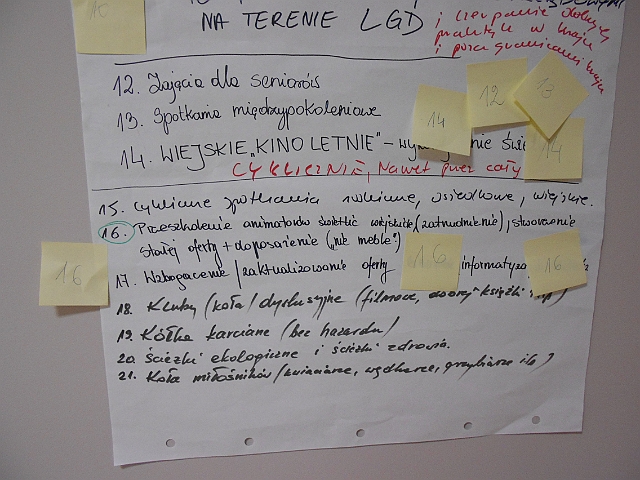 10
NA TERENIE LGD
i czerpanie dobrych
praktyk w kraju
i poza granicami kraju
12. Zajęcia dla seniorów
13. Spotkania międzypokoleniowe
14. WIEJSKIE "KINO LETNIE" –
CYKLICZNIE, nawet przez cały
14
12
13
14
15. cykliczne spotkania rodzinne, osiedlowe, wiejskie.
16. Przeszkolenie animatorów świetlic wiejskich (zatrudnienie), stworzenie
stałej oferty + doposażenie ("nie meble")
17. Wzbogacenie/zaktualizowanie oferty
16
16
16
18. Kluby (koła) dyskusyjne (filmowe, dobrej książki
19. Kółka karciane (bez hazardu)
20. Ścieżki ekologiczne i ścieżki zdrowia.
21. Koła miłośników (kwiaciarze, wędkarze, grzybiarze itp)